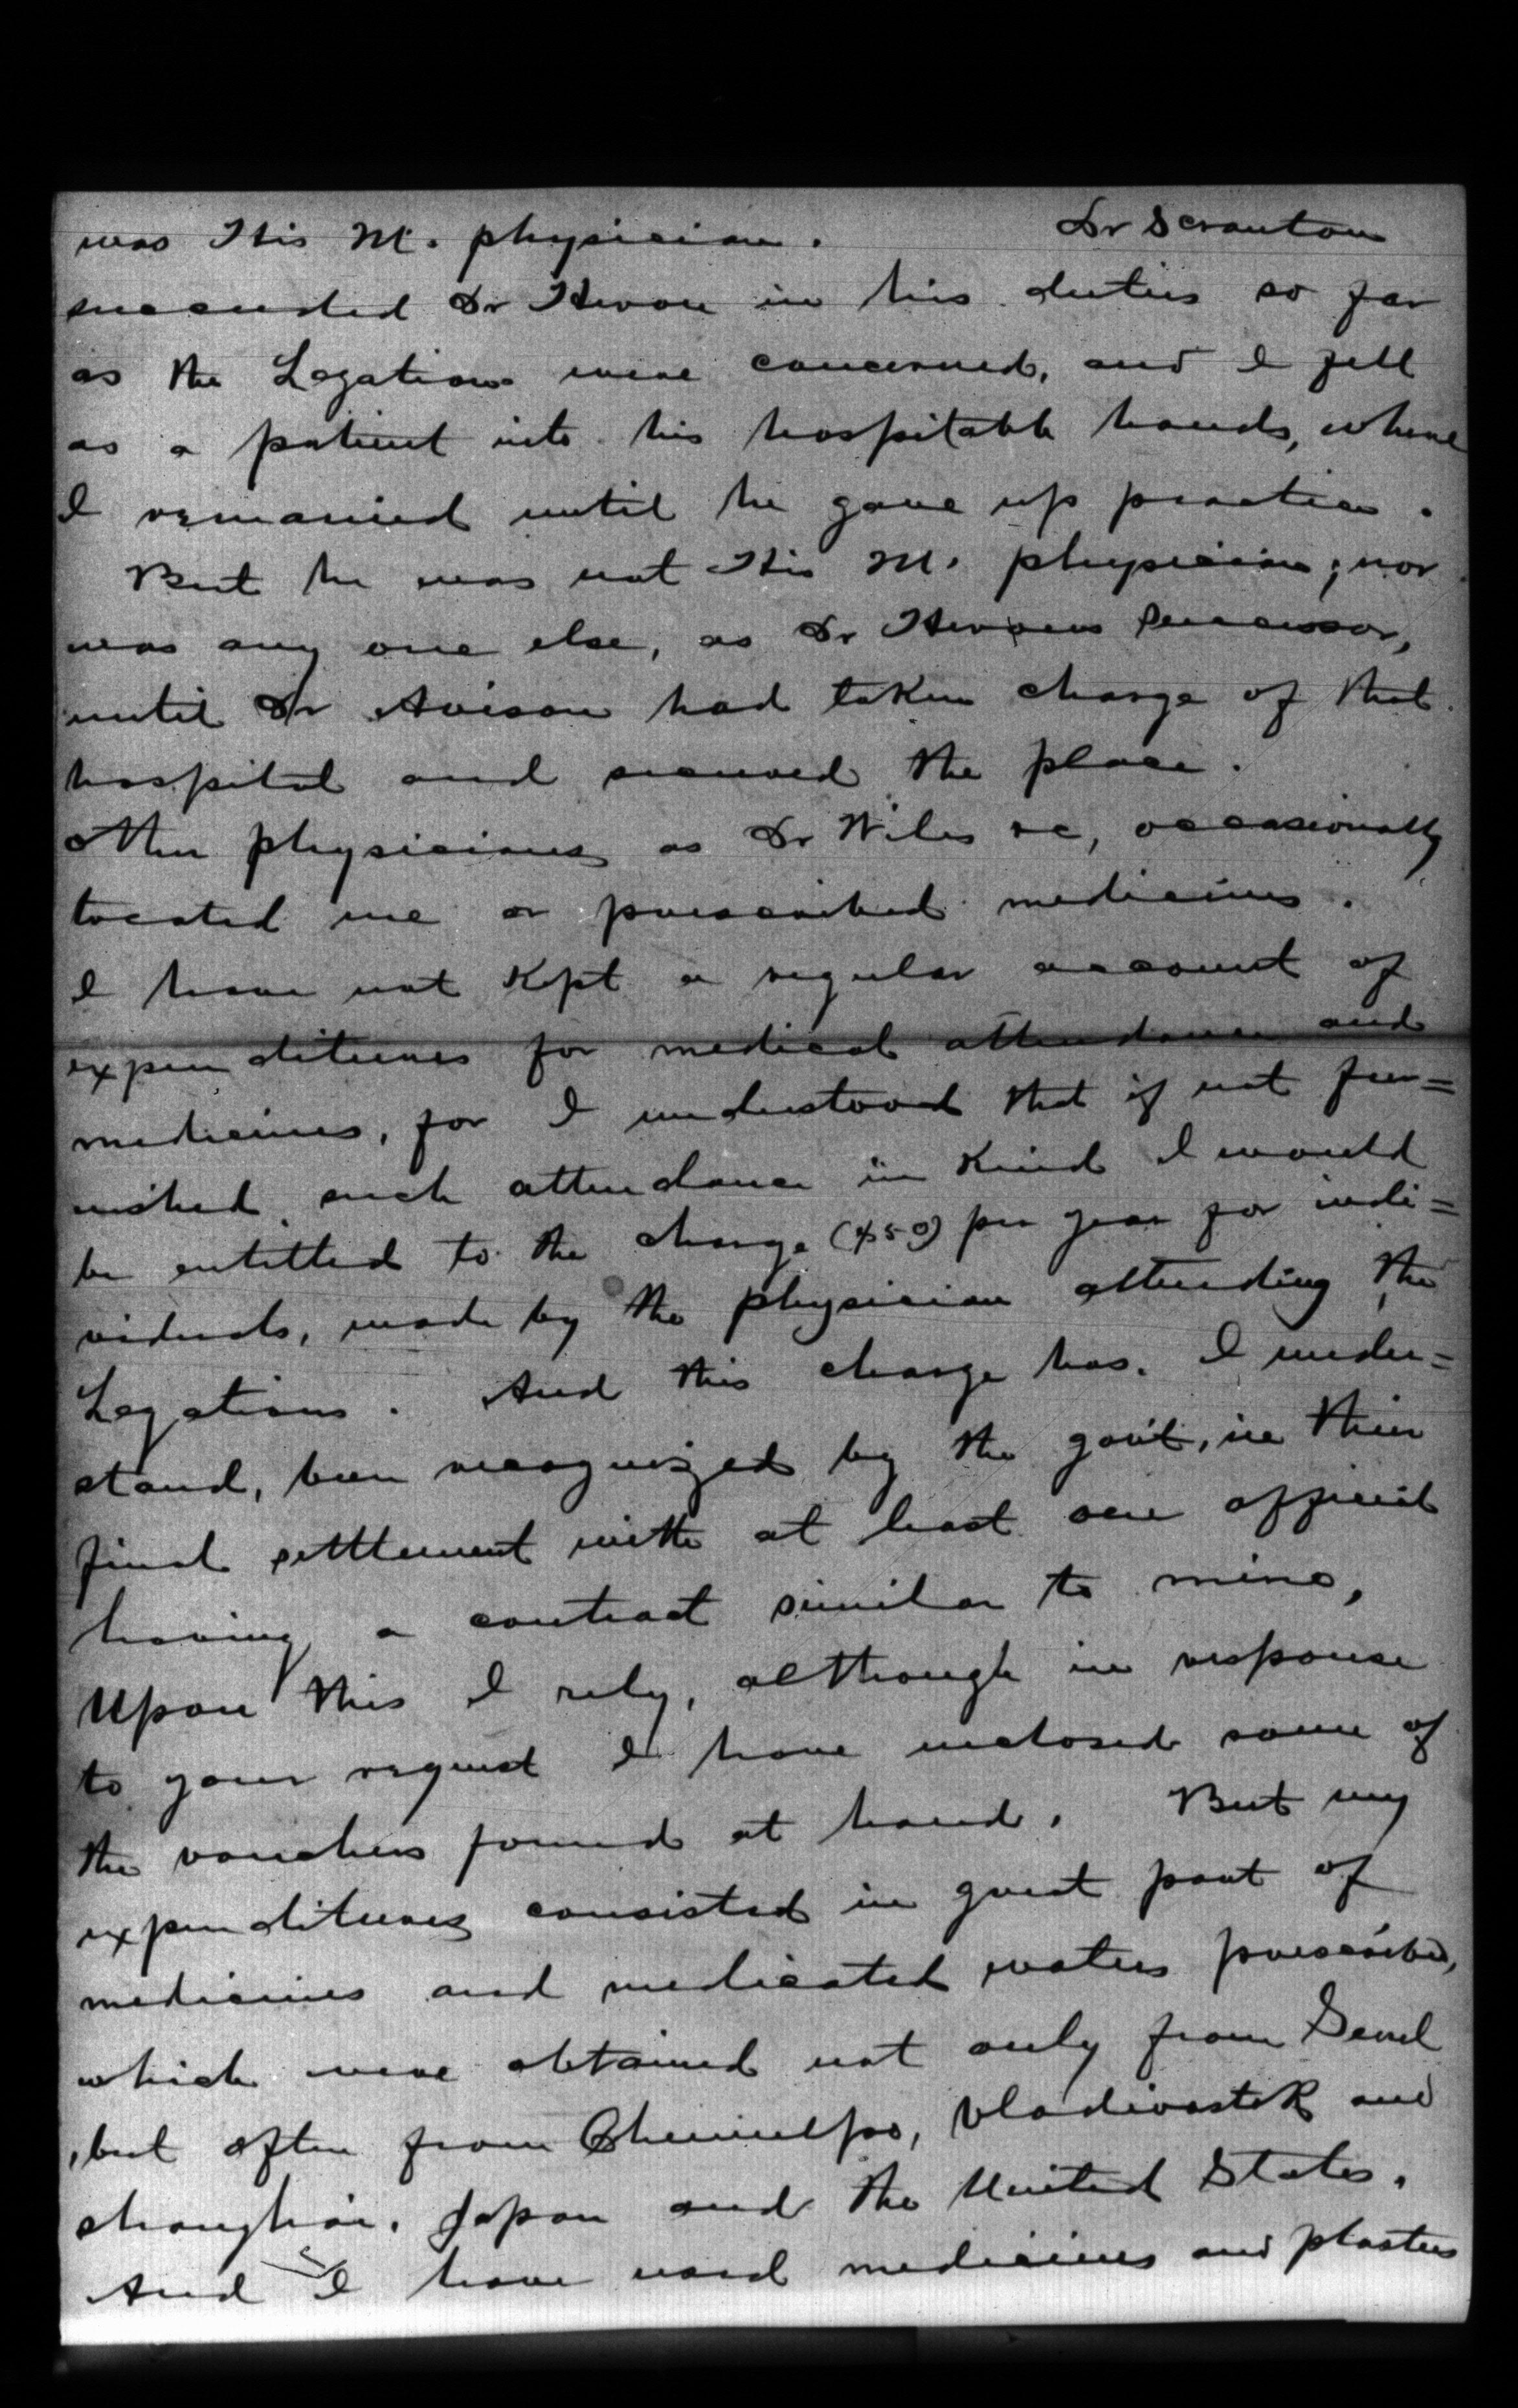 was His M. physician. Dr Scranton
succeeded Dr Heron in his duties so far
as the Legations were concerned, and I fell
as a patient into his hospitable hands, where
I remained until he gave up practice.
But he was not His M. physician; nor
was any one else, as Dr Herons successor,
until Dr Avison had taken charge of that
hospital and secured the place.
Other physicians as Dr Wiles &c, occasionally
treated me or prescribed medicines.
I have not kept a regular account of
expenditures for medical attendance and
medicines, for I understood that if not fur=
nished such attendance in kind I would
be entitled to the charge ($50) per year for indi=
viduals, made by the physician attending the
Legations. And this charge has, I under=
stand, been recognized by the gov't, in their
final settlement with at least one official
having a contract similar to mine,
Upon this I rely, although in response
to your request I have inclosed some of
the vouchers found at hand. But my
expenditures consisted in great part of
medicines and medicated waters prescribed,
which were obtained not only from Seoul
, but often from Chemulpo, Vladivostok and
Shanghai, Japan and the United States.
And I have used medicines and plasters